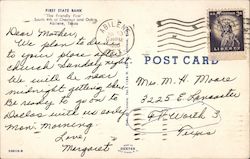 FIRST STATE BANK
"The Friendly First"
South 4th at Chestnut and Oak
Abilene, Texas
Dear Mother,
We plan to drive
to your place after
church Sunday night.
We will be near
midnight getting there.
Be ready to go on to
Dallas with us early
mon. morning.
Love,
Margaret
ABILENE
LIBERTY
POST CARD
Mrs. M. H. Moore
3225 E. Lancaster
Ft. Worth 3,
Texas
DEXTER